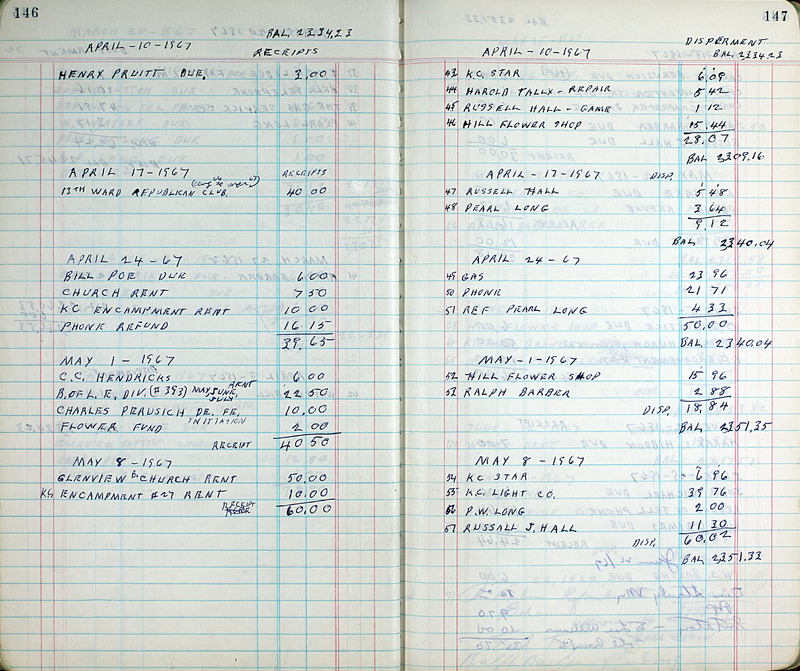 146
BAL. 2334,23
APRIL-10-1967
RECEIPTS
HENRY PRUITT DUE. 3.00
APRIL 17-1967
RECEIPTS
13TH WARD REPUBLICAN CLUB. 40 00
APRIL 24-67
BILL POE DUE 6 00
CHURCH RENT 7 50
KC ENCAMPMENT RENT 10 00
PHONE REFUND 16 15
39.65
MAY 1-1967
C.C. HENDRICKS 6 00
B. OF L. E. DIV. (# 393) MAY, JUNE, JULY RENT 22 50
CHARLES PERUSICH DE. FE. 10.00
INITIATION
FLOWER FUND 2 00
RECEIPT 40 50
MAY 8-1967
GLENVIEW B. CHURCH RENT 50.00
KC ENCAMPMENT #27 RENT 10.00
RECEIPT 60.00
147
DISPERMENT
APRIL-10-1967
BAL. 2334.23
43 K.C. STAR 6 09
44 HAROLD TALLY-REPAIR 5 42
45 RUSSELL HALL-GAME 1 12
46 HILL FLOWER SHOP 15 44
28.07
BAL 2309.16
APRIL-17-1967 DISP.
47 RUSSELL HALL 5 48
48 PEARL LONG 3 64
9.12
BAL 2340.04
APRIL 24-67
49 GAS 23 96
50 PHONE 21 71
51 REF PEARL LONG 4 33
50.00
BAL. 2340.04
MAY-1-1967
52 HILL FLOWER SHOP 15 96
53 RALPH BARBER 2 88
DISP. 18.84
BAL 2351,35
MAY 8-1967
54 KC STAR 6 96
55 K.C. LIGHT CO. 39 76
56 P.W. LONG 2 00
57 RUSSALL J. HALL 11 30
DISP. 60.02
BAL 2351.33